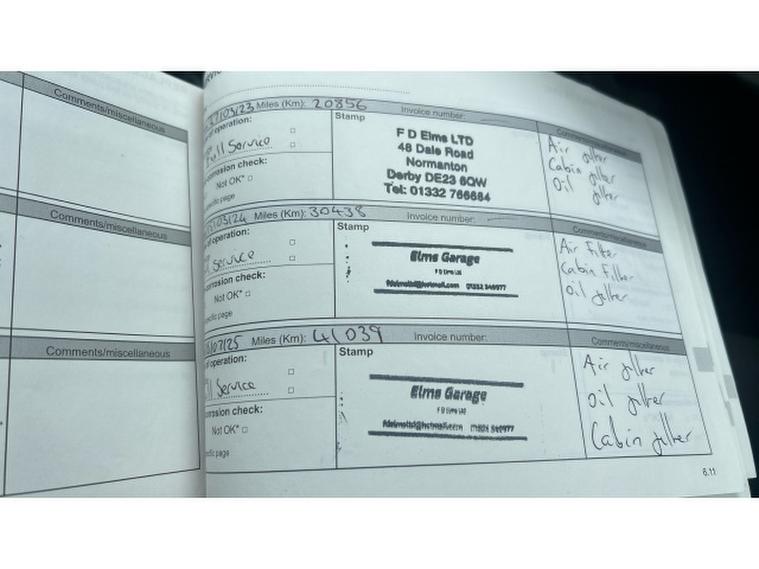 Comments/miscellaneous
Comments/miscellaneous
Comments/miscellaneous
Miles (Km): 20856 Invoice number:
of operation:
Full Service
corrosion check:
Not OK*
page
Stamp
F D Elms LTD
48 Dale Road
Normanton
Derby DE23 6QW
Tel: 01332 766684
Comments/miscellaneous
Air filter
Cabin filter
Oil filter
/03/24 Miles (Km): 30438 Invoice number:
of operation:
Service
corrosion check:
Not OK*
page
Stamp
Elms Garage
F D Elms Ltd
Comments/miscellaneous
Air Filter
Cabin Filter
Oil filter
Miles (Km): 41039 Invoice number:
of operation:
Service
corrosion check:
Not OK*
page
Stamp
Elms Garage
F D Elms Ltd
Comments/miscellaneous
Air filter
Oil filter
Cabin filter
6.11